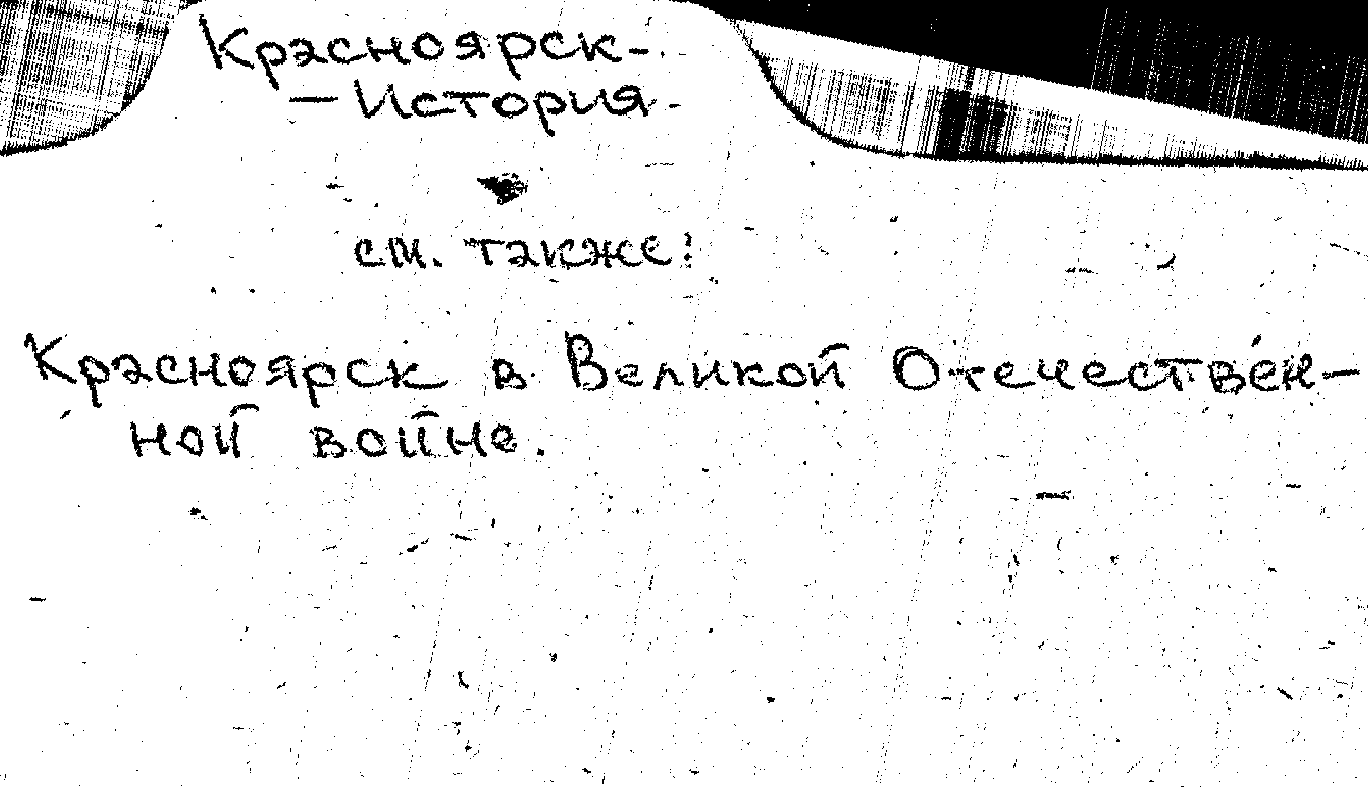 Красноярск-
- История
см. также:
Красноярск в Великой Отечествен-
ной войне.